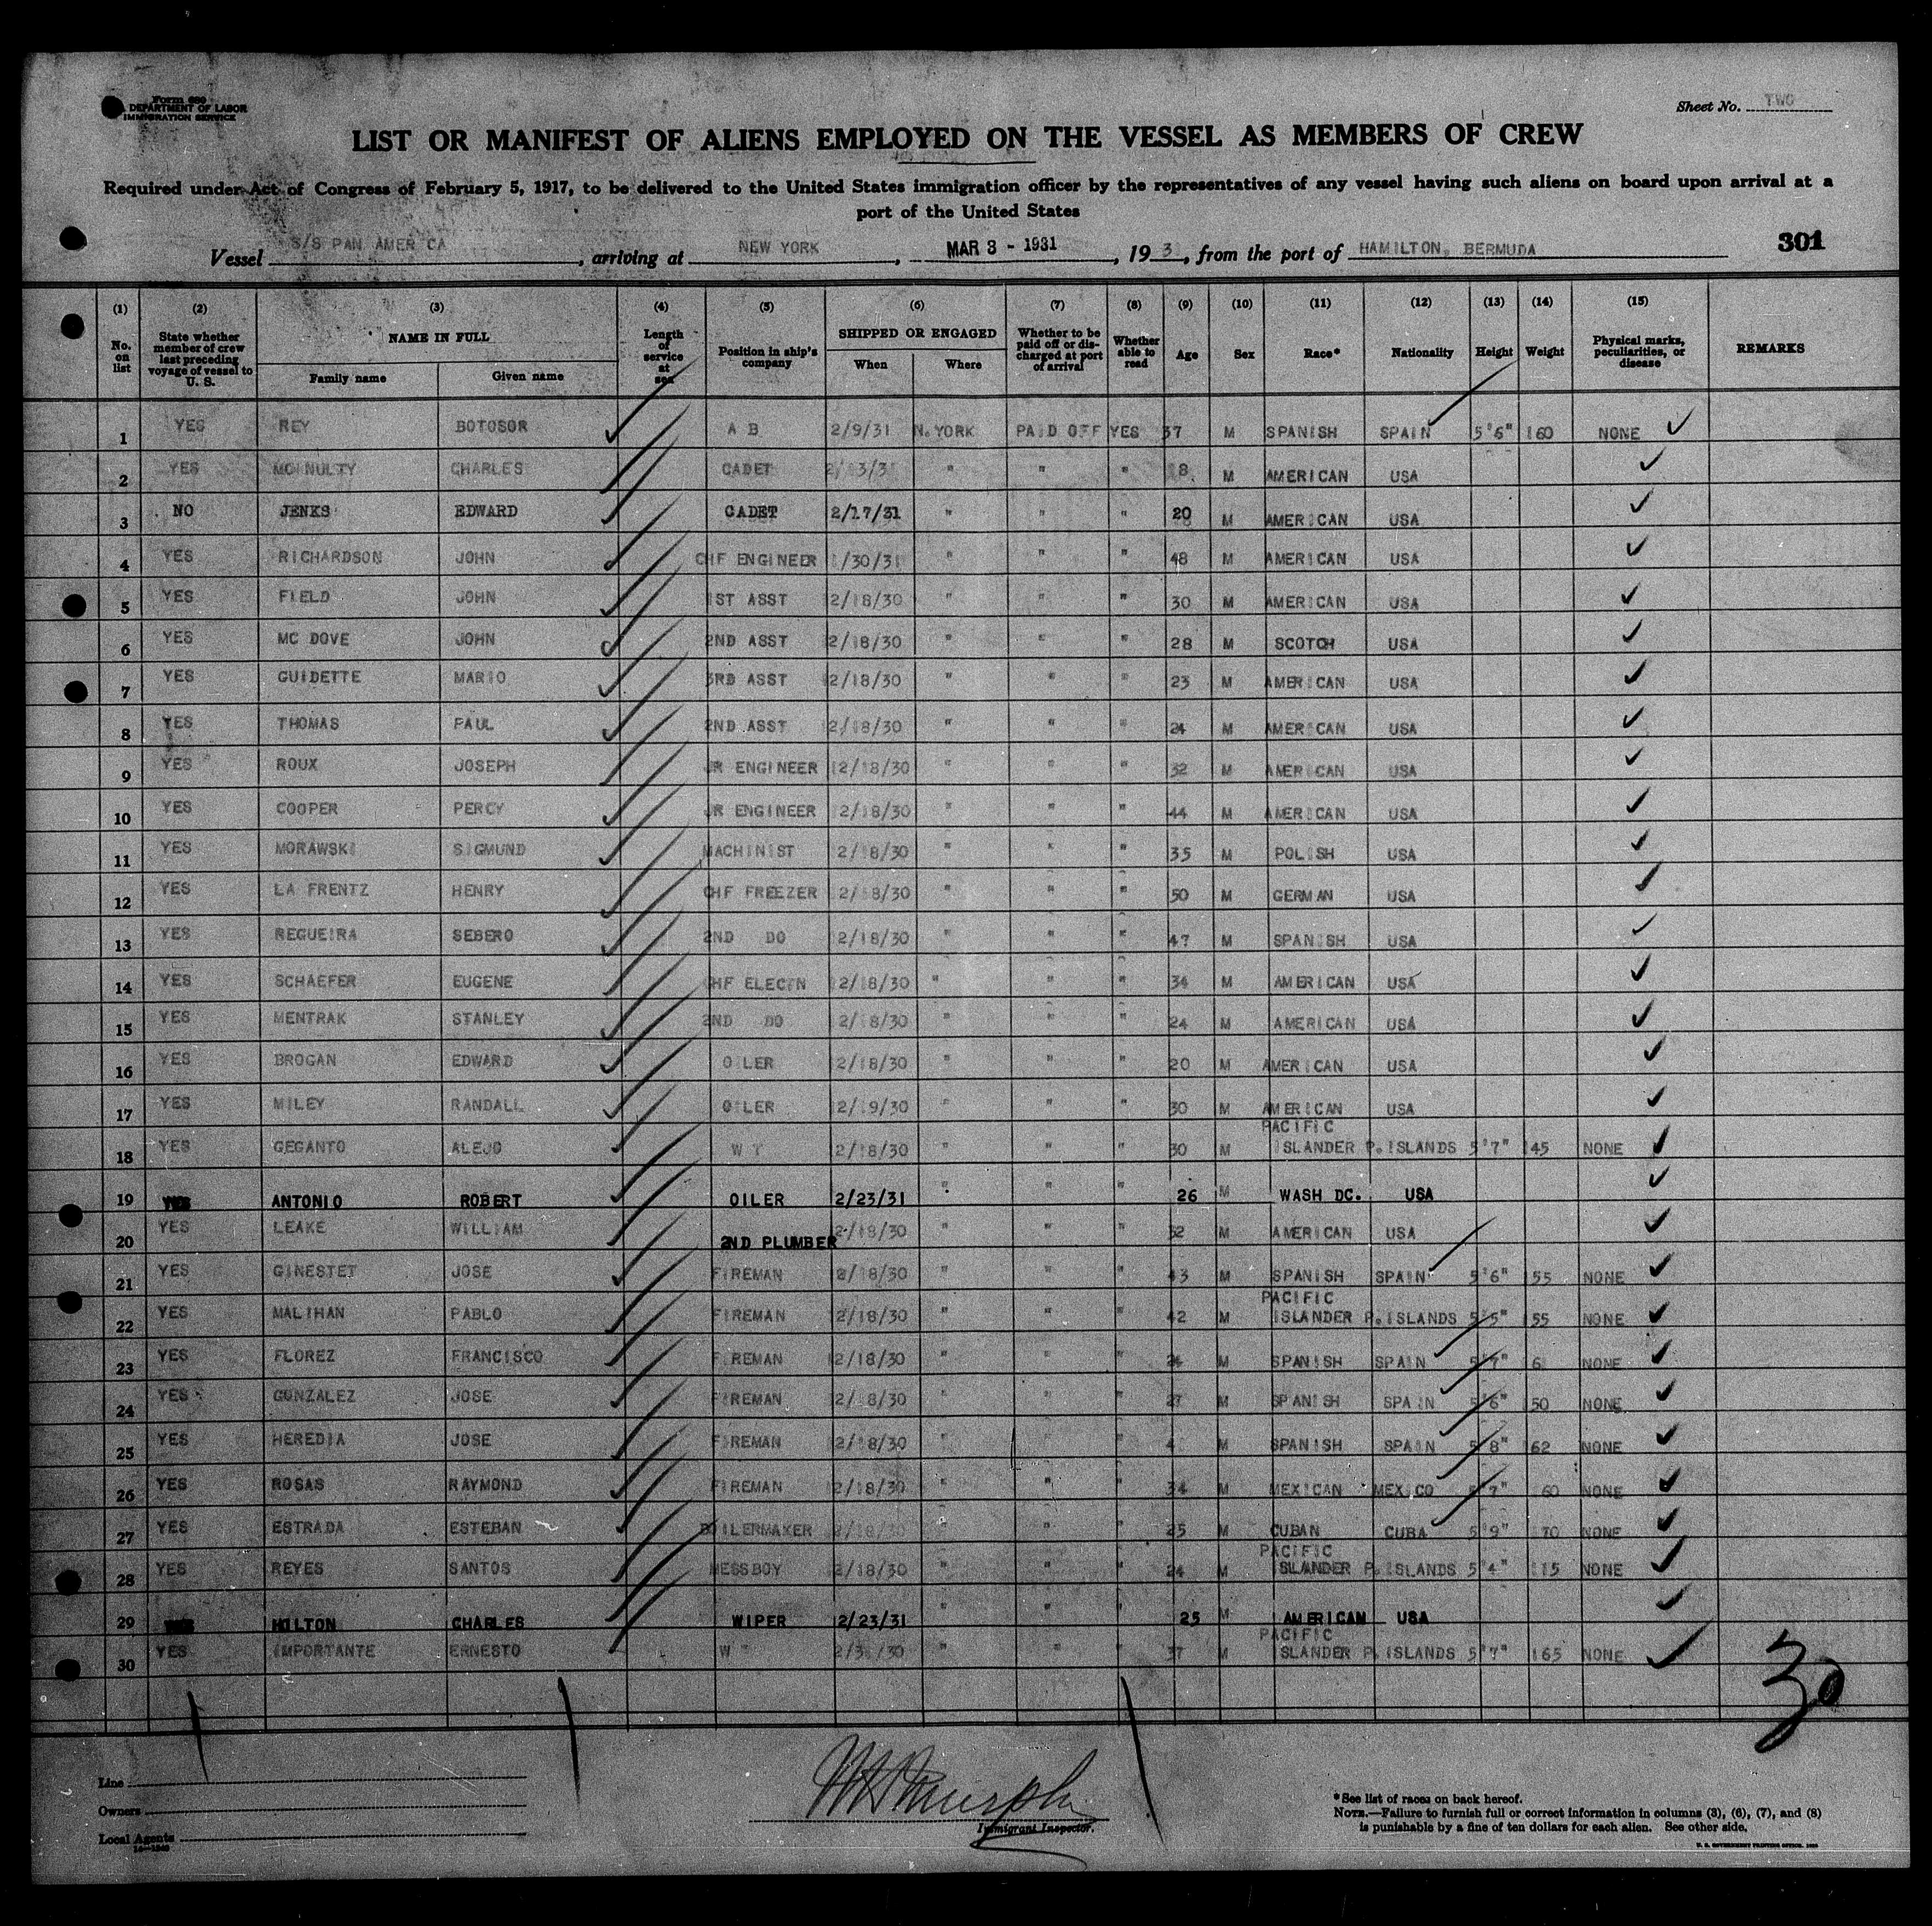 Form 680
DEPARTMENT OF LABOR
IMMIGRATION SERVICE
Sheet No. TWO
LIST OR MANIFEST OF ALIENS EMPLOYED ON THE VESSEL AS MEMBERS OF CREW
Required under Act of Congress of February 5, 1917, to be delivered to the United States immigration officer by the representatives of any vessel having such aliens on board upon arrival at a
port of the United States
Vessel S/S PAN AMER CA, arriving at NEW YORK, MAR 3 - 1931, 19 3, from the port of HAMILTON, BERMUDA 301
(1) (2) (3) (4) (5) (6) (7) (8) (9) (10) (11) (12) (13) (14) (15)
No. on list State whether member of crew last preceding voyage of vessel to U. S. NAME IN FULL Family name Given name Length of service at sea Position in ship's company SHIPPED OR ENGAGED When Where Whether to be paid off or discharged at port of arrival Whether able to read Age Sex Race* Nationality Height Weight Physical marks, peculiarities, or disease REMARKS
1 YES REY BOTOSOR A B 2/9/31 N.YORK PAID OFF YES 37 M SPANISH SPAIN 5'6" 160 NONE
2 YES MC NULTY CHARLES CADET 2/ 3/3 " " " 18 M AMERICAN USA
3 NO JENKS EDWARD CADET 2/17/31 " " " 20 M AMERICAN USA
4 YES RICHARDSON JOHN CHF ENGINEER 1/30/31 " " " 48 M AMERICAN USA
5 YES FIELD JOHN 1ST ASST 12/18/30 " " " 30 M AMERICAN USA
6 YES MC DOVE JOHN 2ND ASST 12/18/30 " " " 28 M SCOTCH USA
7 YES GUIDETTE MARIO 3RD ASST 12/18/30 " " " 23 M AMERICAN USA
8 YES THOMAS PAUL 2ND ASST 12/18/30 " " " 24 M AMERICAN USA
9 YES ROUX JOSEPH JR ENGINEER 12/18/30 " " " 32 M AMERICAN USA
10 YES COOPER PERCY JR ENGINEER 12/18/30 " " " 44 M AMERICAN USA
11 YES MORAWSKI SIGMUND MACHINIST 12/18/30 " " " 35 M POLISH USA
12 YES LA FRENTZ HENRY CHF FREEZER 12/18/30 " " " 50 M GERMAN USA
13 YES REGUEIRA SEBERO 2ND DO 12/18/30 " " " 47 M SPANISH USA
14 YES SCHAEFER EUGENE CHF ELECTN 12/18/30 " " " 34 M AMERICAN USA
15 YES MENTRAK STANLEY 2ND DO 12/18/30 " " " 24 M AMERICAN USA
16 YES BROGAN EDWARD OILER 12/18/30 " " " 20 M AMERICAN USA
17 YES MILEY RANDALL OILER 12/19/30 " " " 30 M AMERICAN USA
18 YES GEGANTO ALEJO W T 12/18/30 " " " 30 M PACIFIC ISLANDER P.ISLANDS 5'7" 145 NONE
19 YES ANTONIO ROBERT OILER 2/23/31 " " " 26 M WASH DC. USA
20 YES LEAKE WILLIAM 2ND PLUMBER 12/18/30 " " " 32 M AMERICAN USA
21 YES GINESTET JOSE FIREMAN 12/18/30 " " " 43 M SPANISH SPAIN 5'6" 155 NONE
22 YES MALIHAN PABLO FIREMAN 12/18/30 " " " 42 M PACIFIC ISLANDER P.ISLANDS 5'5" 155 NONE
23 YES FLOREZ FRANCISCO FIREMAN 12/18/30 " " " 24 M SPANISH SPAIN 5'7" NONE
24 YES GONZALEZ JOSE FIREMAN 12/18/30 " " " 27 M SPANISH SPAIN 5'6" 150 NONE
25 YES HEREDIA JOSE FIREMAN 12/18/30 " " " M SPANISH SPAIN 5'8" 162 NONE
26 YES ROSAS RAYMOND FIREMAN 12/18/30 " " " 34 M MEXICAN MEXICO 5'7" 160 NONE
27 YES ESTRADA ESTEBAN BOILERMAKER 12/18/30 " " " 25 M CUBAN CUBA 5'9" 170 NONE
28 YES REYES SANTOS MESSBOY 12/18/30 " " " 24 M PACIFIC ISLANDER P.ISLANDS 5'4" 115 NONE
29 YES HOLTON CHARLES WIPER 2/23/31 " " " 25 M AMERICAN USA
30 YES IMPORTANTE ERNESTO W 12/31/30 " " " 37 M PACIFIC ISLANDER P.ISLANDS 5'7" 165 NONE
30
Line
Owners
Local Agents
Immigrant Inspector.
*See list of races on back hereof.
NOTE.—Failure to furnish full or correct information in columns (3), (6), (7), and (8)
is punishable by a fine of ten dollars for each alien. See other side.
U. S. GOVERNMENT PRINTING OFFICE